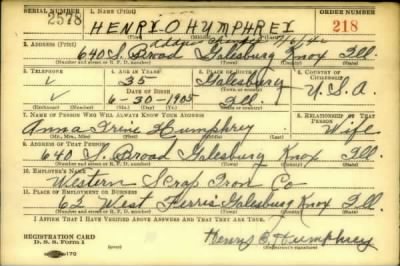 SERIAL NUMBER 1. NAME (Print) ORDER NUMBER
2578 HENRI O HUMPHREY 218
(First) (Middle) (Last)
2. ADDRESS (Print)
640 S. Broad Galesburg Knox Ill.
(Number and street or R. F. D. number) (Town) (County) (State)
3. TELEPHONE 4. AGE IN YEARS 5. PLACE OF BIRTH 6. COUNTRY OF CITIZENSHIP
35 Galesburg
DATE OF BIRTH (Town or county)
6-30-1905 Ill. U.S.A.
(Exchange) (Number) (Mo.) (Day) (Yr.) (State or country)
7. NAME OF PERSON WHO WILL ALWAYS KNOW YOUR ADDRESS 8. RELATIONSHIP OF THAT PERSON
Anna Irene Humphrey Wife
(Mr., Mrs., Miss) (First) (Middle) (Last)
9. ADDRESS OF THAT PERSON
640 S. Broad Galesburg Knox Ill.
(Number and street or R. F. D. number) (Town) (County) (State)
10. EMPLOYER'S NAME
Western Scrap Iron Co
11. PLACE OF EMPLOYMENT OR BUSINESS
62 West Ferris Galesburg Knox Ill.
(Number and street or R. F. D. number) (Town) (County) (State)
I AFFIRM THAT I HAVE VERIFIED ABOVE ANSWERS AND THAT THEY ARE TRUE.
REGISTRATION CARD
D. S. S. Form 1
Henry O Humphrey
(Registrant's signature)